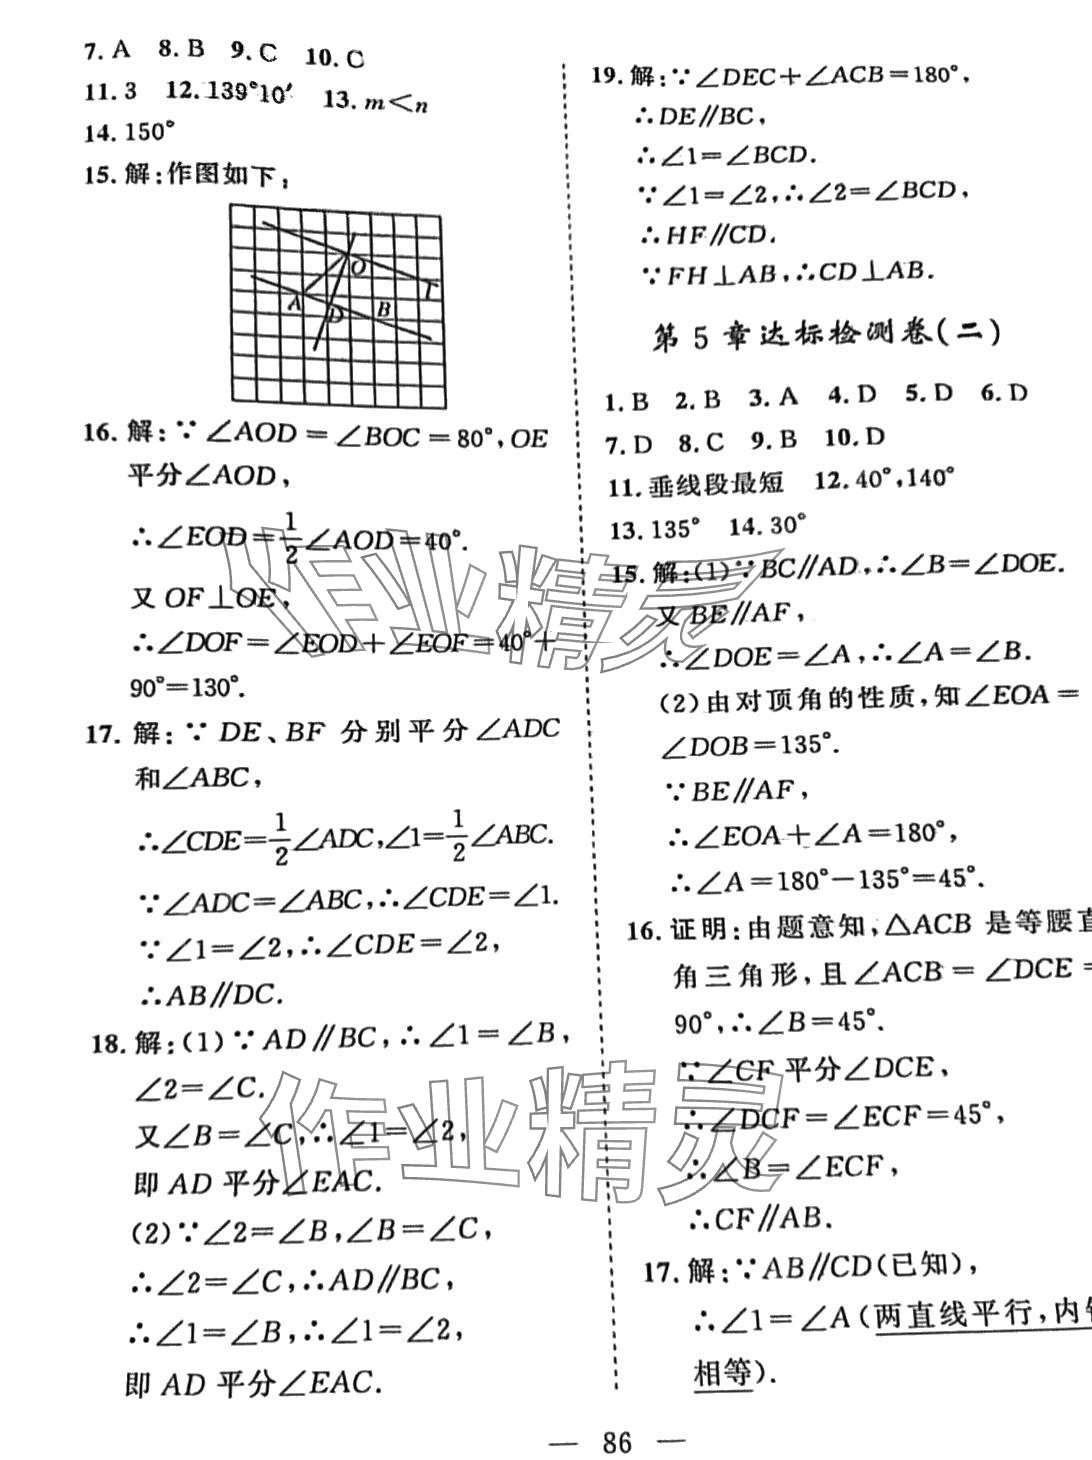 7. A 8. B 9. C 10. C
11. 3 12. 139°10′ 13. m<n
14. 150°
15. 解:作图如下;
O
l
A
D
B
16. 解:∵∠AOD=∠BOC=80°,OE
平分∠AOD,
∴∠EOD=1/2∠AOD=40°.
又OF⊥OE,
∴∠DOF=∠EOD+∠EOF=40°+
90°=130°.
17. 解:∵DE、BF 分别平分∠ADC
和∠ABC,
∴∠CDE=1/2∠ADC,∠1=1/2∠ABC.
∵∠ADC=∠ABC,∴∠CDE=∠1.
∵∠1=∠2,∴∠CDE=∠2,
∴AB∥DC.
18. 解:(1)∵AD∥BC,∴∠1=∠B,
∠2=∠C.
又∠B=∠C,∴∠1=∠2,
即AD平分∠EAC.
(2)∵∠2=∠B,∠B=∠C,
∴∠2=∠C,∴AD∥BC,
∴∠1=∠B,∴∠1=∠2,
即AD平分∠EAC.
19. 解:∵∠DEC+∠ACB=180°,
∴DE∥BC,
∴∠1=∠BCD.
∵∠1=∠2,∴∠2=∠BCD,
∴HF∥CD.
∵FH⊥AB,∴CD⊥AB.
第5章达标检测卷(二)
1. B 2. B 3. A 4. D 5. D 6. D
7. D 8. C 9. B 10. D
11. 垂线段最短 12. 40°,140°
13. 135° 14. 30°
15. 解:(1)∵BC∥AD,∴∠B=∠DOE.
又BE∥AF,
∴∠DOE=∠A,∴∠A=∠B.
(2)由对顶角的性质,知∠EOA=
∠DOB=135°.
∵BE∥AF,
∴∠EOA+∠A=180°,
∴∠A=180°-135°=45°.
16. 证明:由题意知,△ACB是等腰直
角三角形,且∠ACB=∠DCE=
90°,∴∠B=45°.
∵∠CF平分∠DCE,
∴∠DCF=∠ECF=45°,
∴∠B=∠ECF,
∴CF∥AB.
17. 解:∵AB∥CD(已知),
∴∠1=∠A(两直线平行,内错
相等).
作业精灵
作业精灵
— 86 —